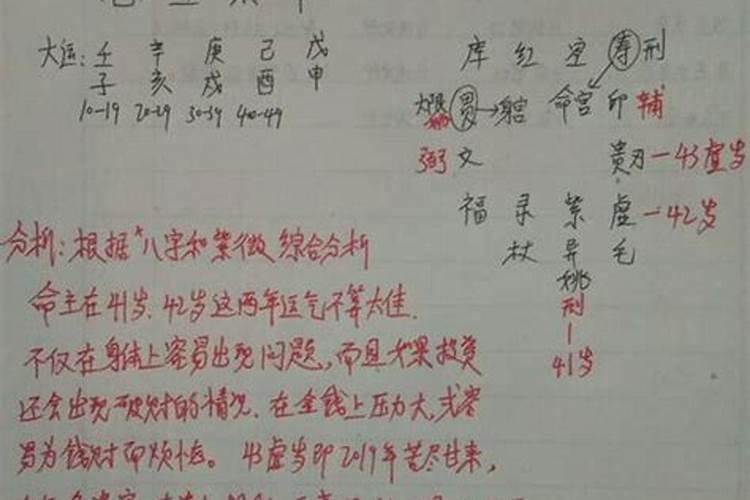 大运: 壬 辛 庚 己 戊
子 亥 戌 酉 申
10-19 20-29 30-39 40-49
库 红 空 寿刑
大限 贯→身宫 命宫 印 辅
弼 文 贵刃-43虚岁
福 录 紫 虚-42岁
杖 异 毛
姚
刑
41岁
分析: 根据"八字和紫微 综合分析
命主在41岁、42岁这两年运气不算太佳.
不仅在身体上容易出现问题, 而且如果投资
还会出现破财的情况. 在金钱上压力大, 或容
易为钱财而烦恼。 43虚岁即2019年苦尽甘来,